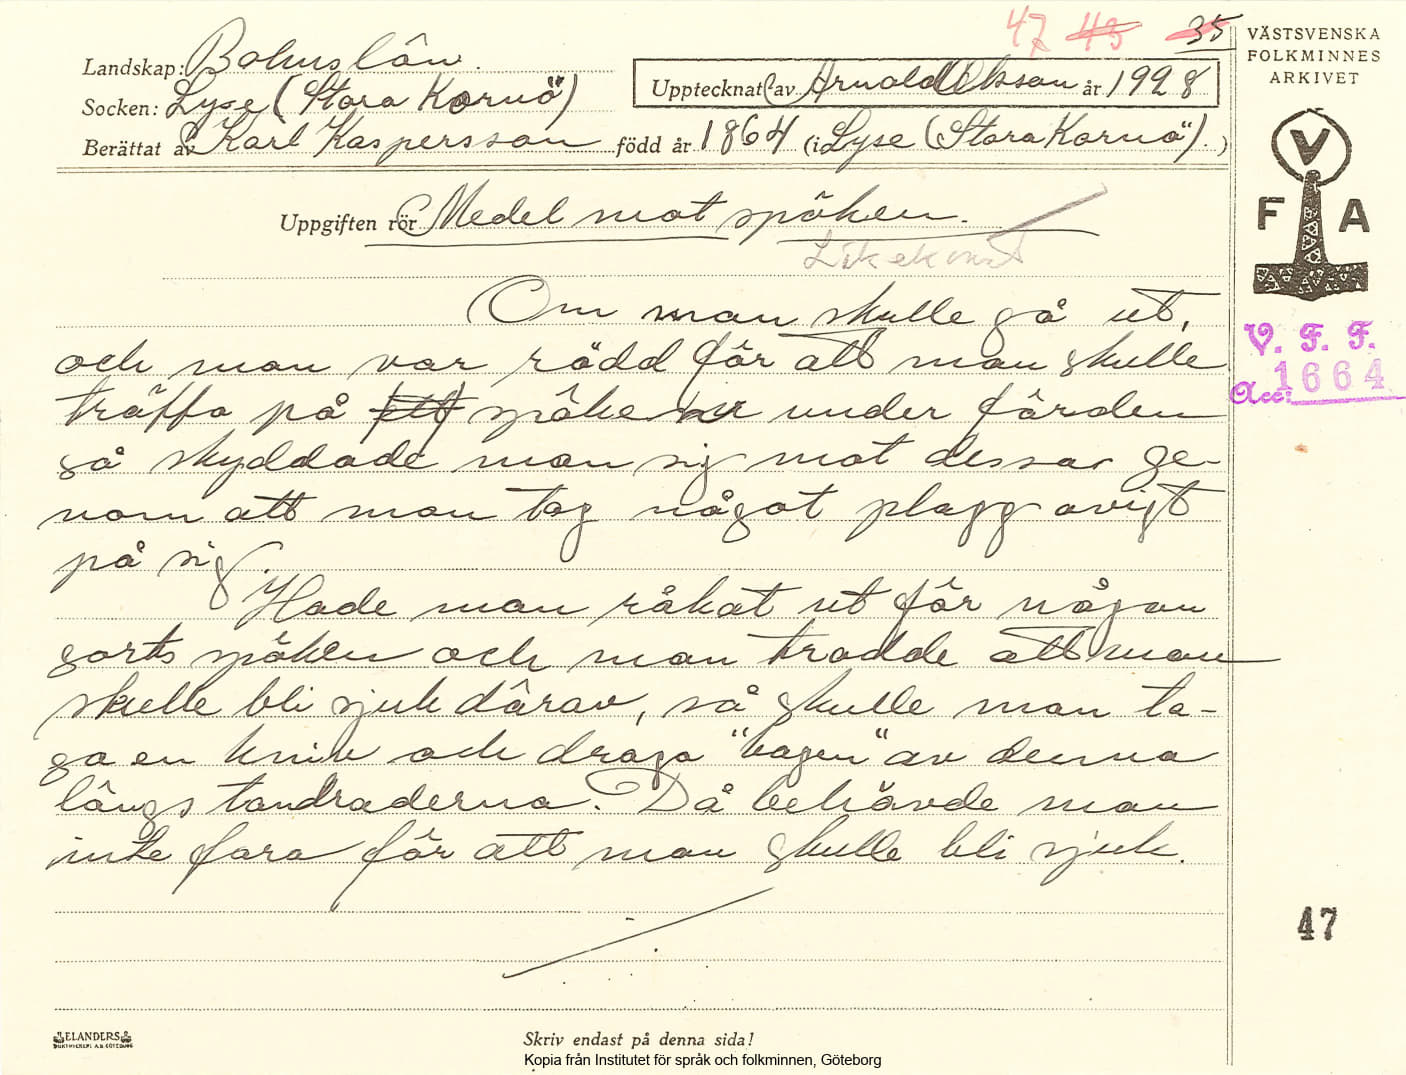 47 43 35
VÄSTSVENSKA
FOLKMINNES
ARKIVET
Landskap: Bohuslän.
Socken: Lyse (Stora Kornö)
Upptecknat av Arnold Olsson år 1928
Berättat av Karl Kaspersson född år 1864 (i Lyse (Stora Kornö). )
Uppgiften rör Medel mot spöken.
V
F A
Om man skulle gå ut,
och man var rädd för att man skulle
träffa på ett spöke under färden
så skyddade man sig mot dessa ge-
nom att man tog något plagg avigt
på sig.
Hade man råkat ut för någon
sorts spöken och man trodde att man
skulle bli sjuk därav, så skulle man ta-
ga en kniv och draga "bagen" av denna
längs tandraderna. Då behövde man
inte fara för att man skulle bli sjuk.
V. F. F.
Acc: 1664
47
ELANDERS
BOKTRYCKERI A.B. GÖTEBORG
Skriv endast på denna sida!
Kopia från Institutet för språk och folkminnen, Göteborg